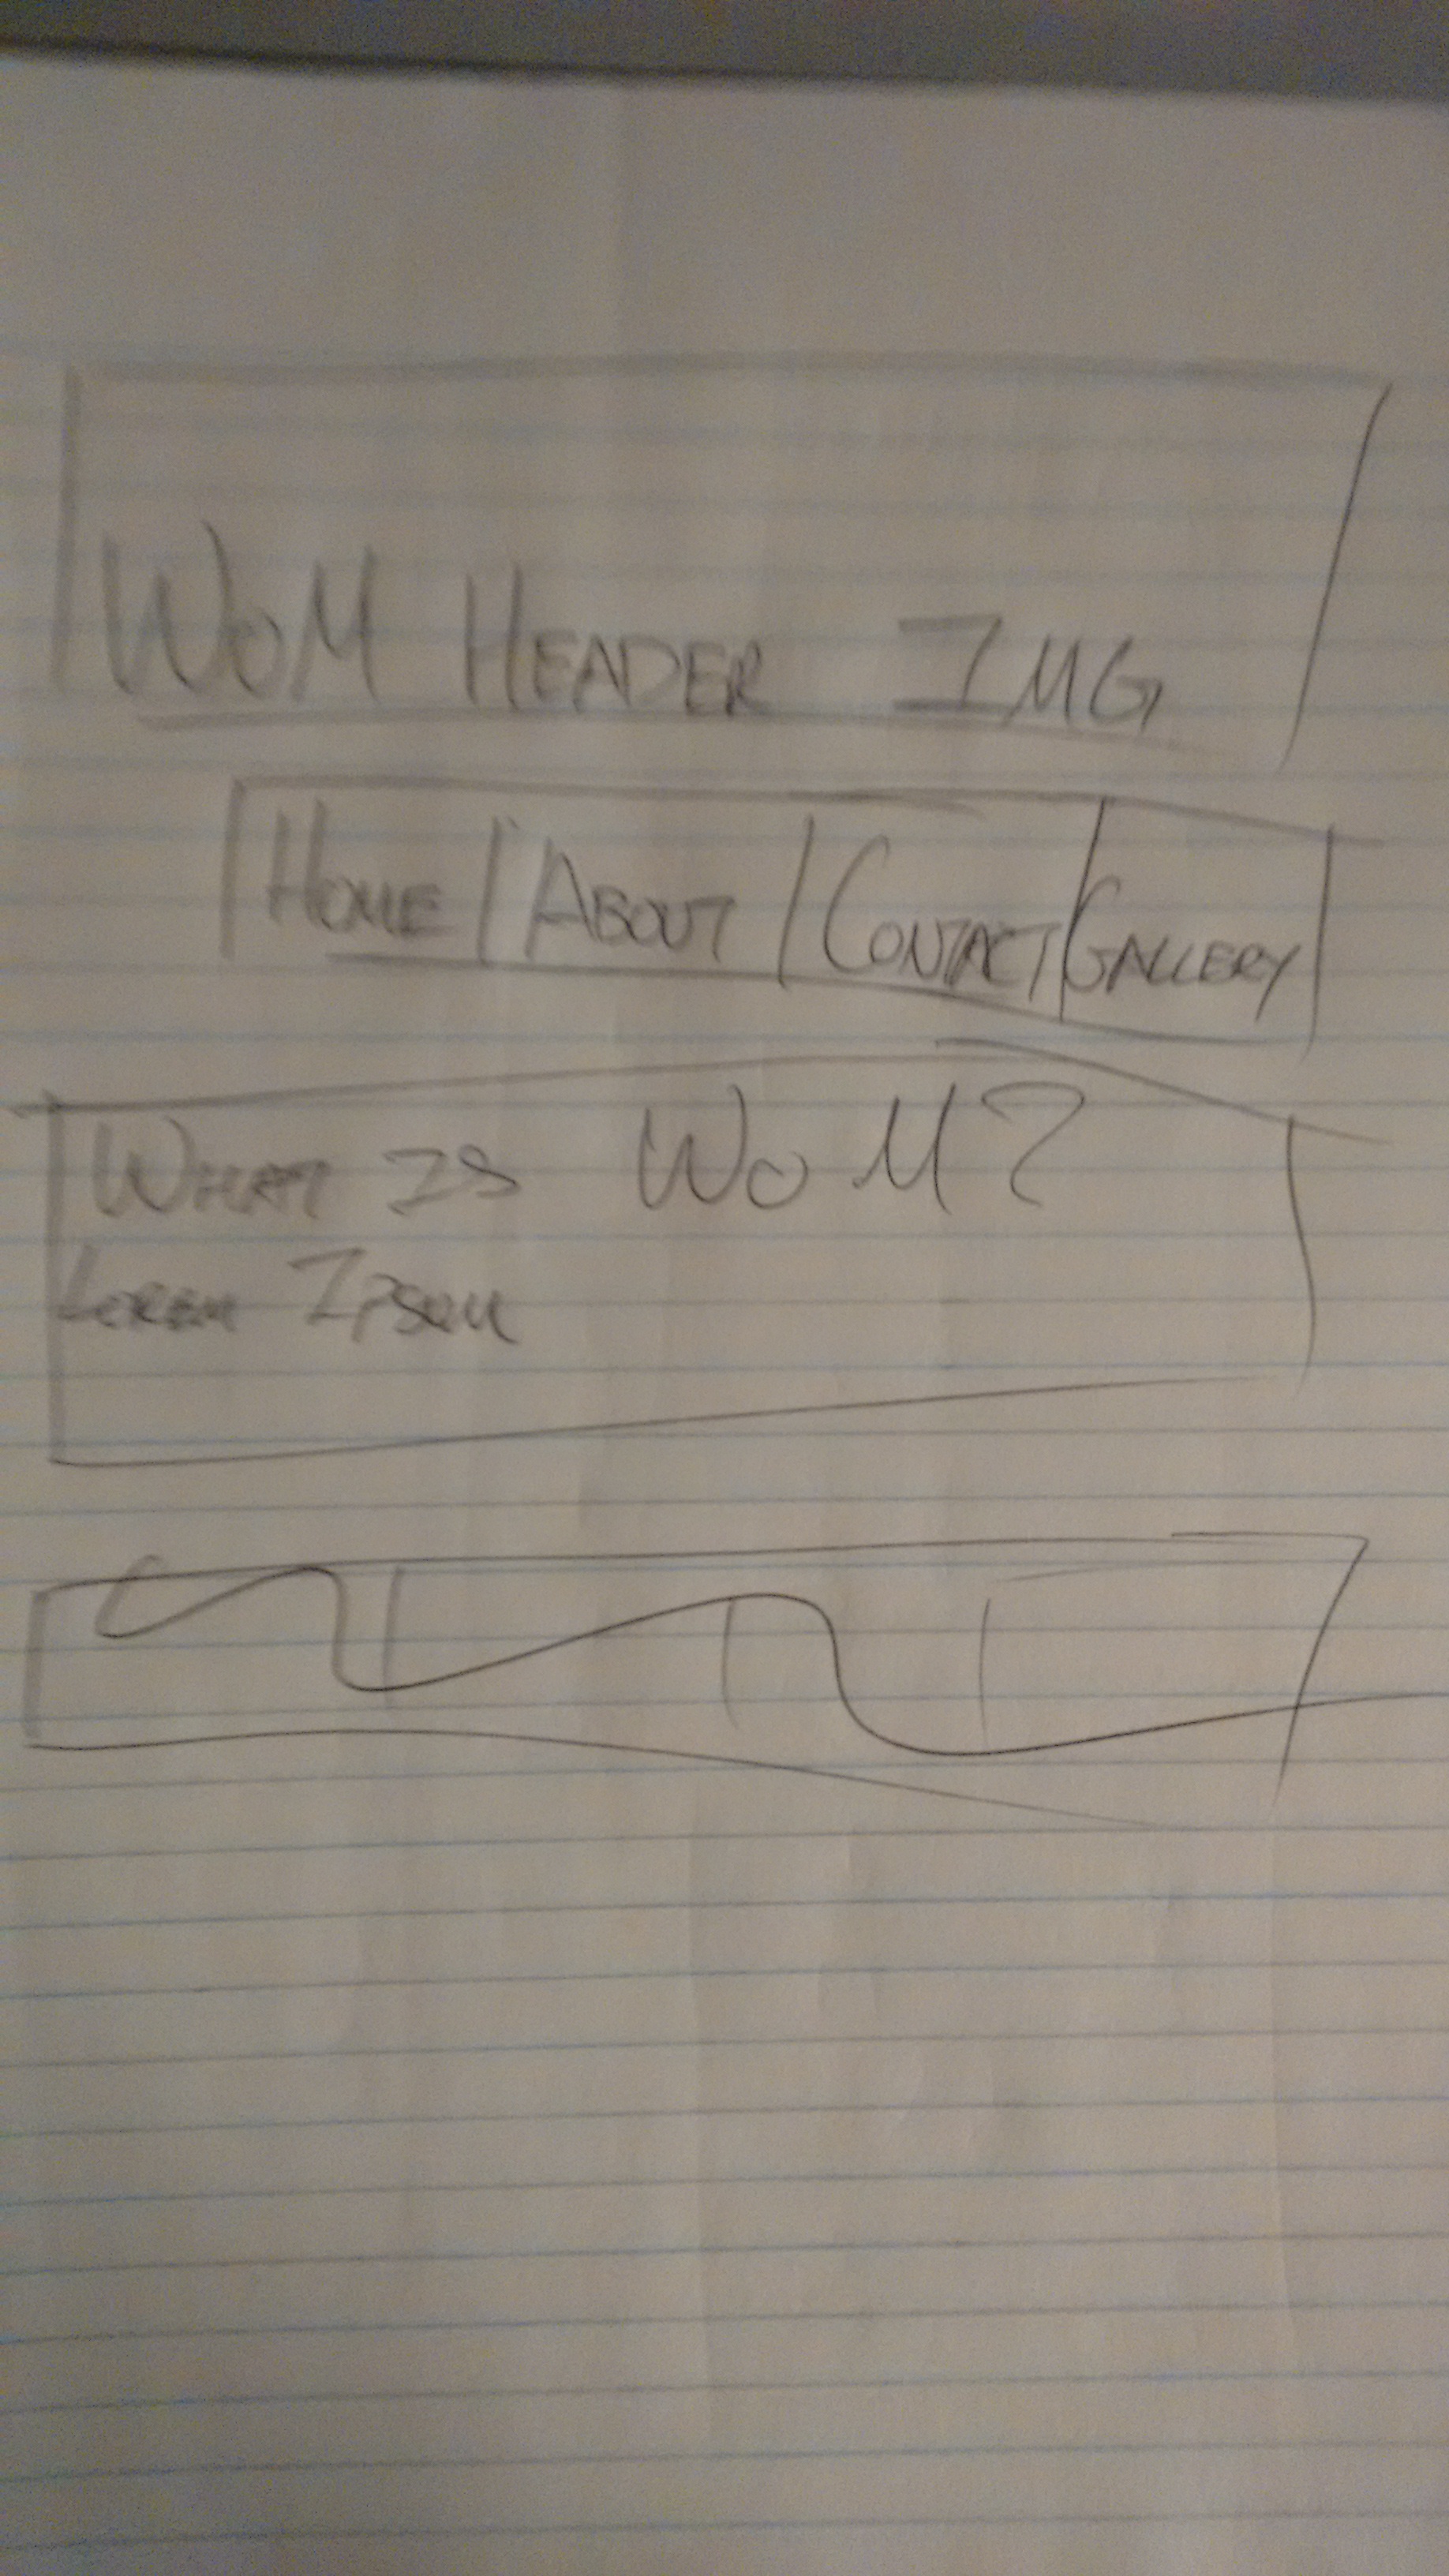 WOM HEADER IMG
HOME | ABOUT | CONTACT | GALLERY
WHAT IS WOM?
LOREM IPSUM